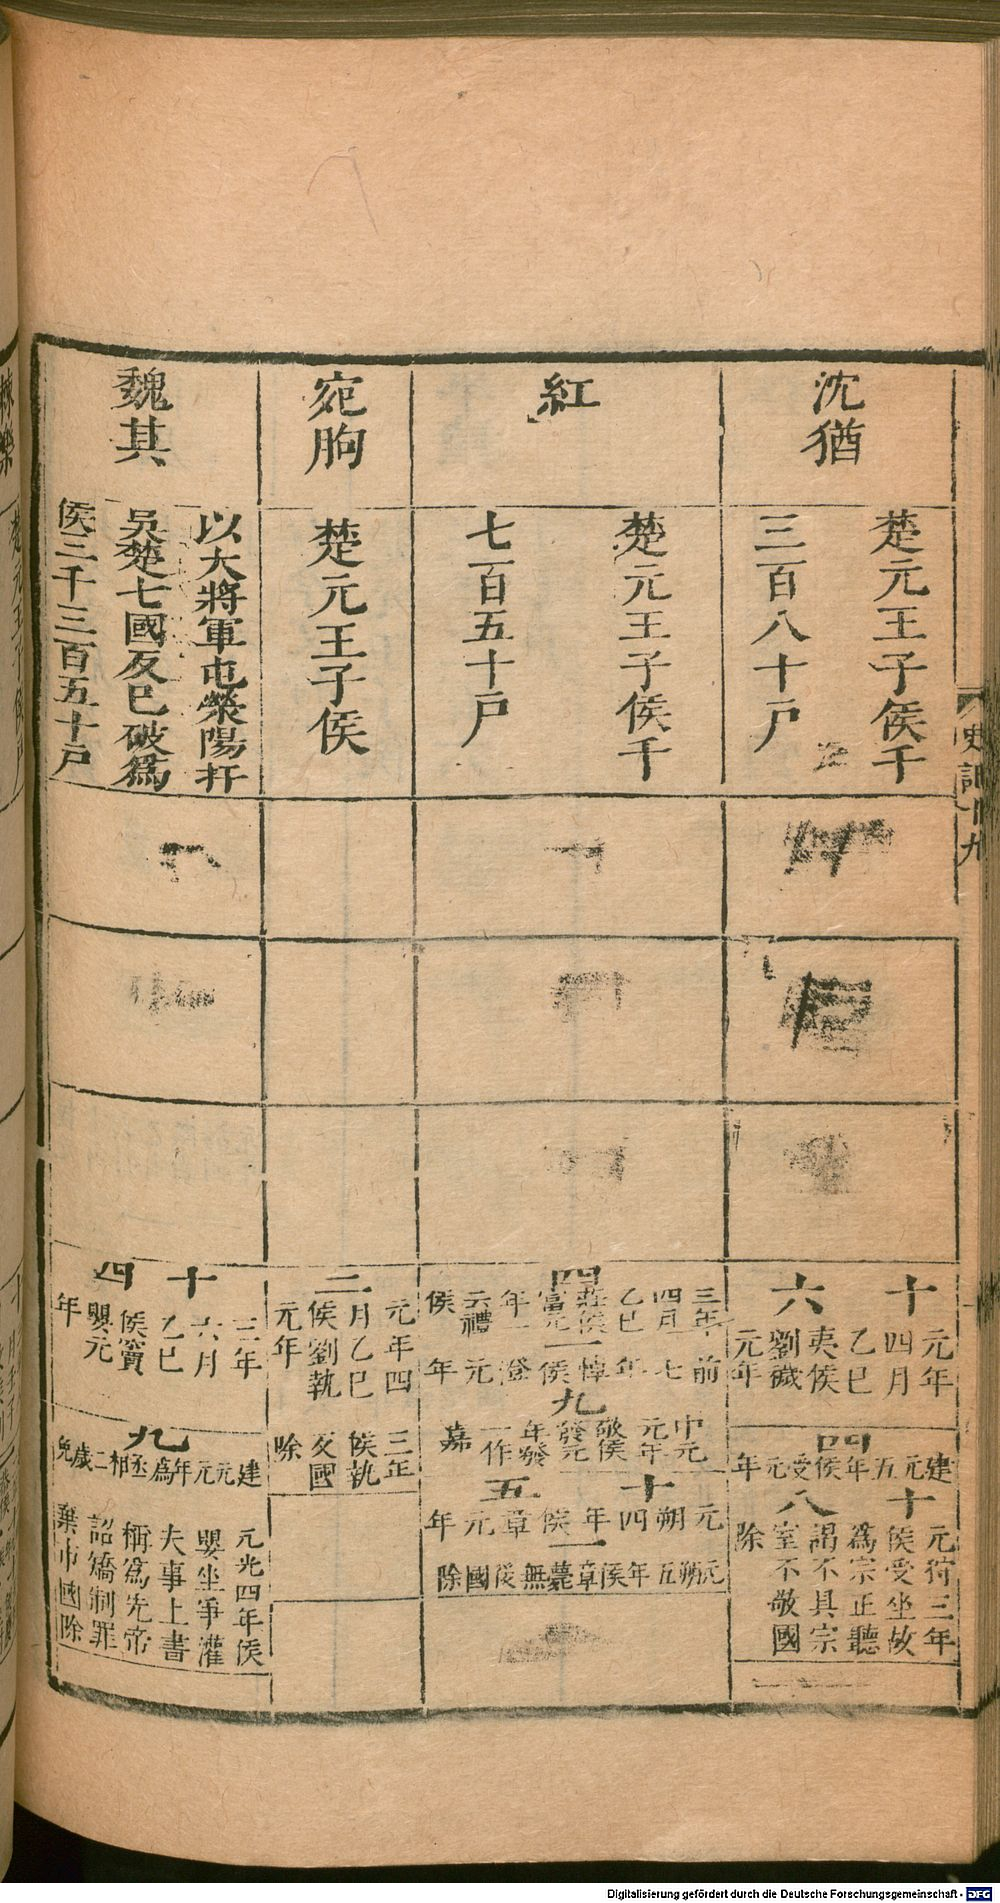 沈猶
楚元王子侯千
三百八十戶
十六
元年
四月
乙巳
夷侯
劉歲
元年
四
建元五年侯受元年
十八
元狩三年
侯受坐故
爲宗正聽
謁不具宗
室不敬國
除
紅
楚元王子侯千
七百五十戶
四
三年
四月
乙巳
莊侯
富元
年
一
前七年悼侯澄元年
九
中元
元年
敬侯
發元
年
十五
元朔四年侯章元年
一
元朔五年侯章薨無後國除
宛朐
楚元王子侯
二
元年四
月乙巳
侯劉執
元年
三年
侯執
反國
除
魏其
以大將軍屯滎陽扞
吳楚七國反已破爲
侯三千三百五十戶
十四
三年
六月
乙巳
侯竇
嬰元
年
九
建元元年爲丞相二歲免
元光四年侯
嬰坐爭灌
夫事上書
稱爲先帝
詔矯制罪
棄市國除
Digitalisierung gefördert durch die Deutsche Forschungsgemeinschaft - DFG